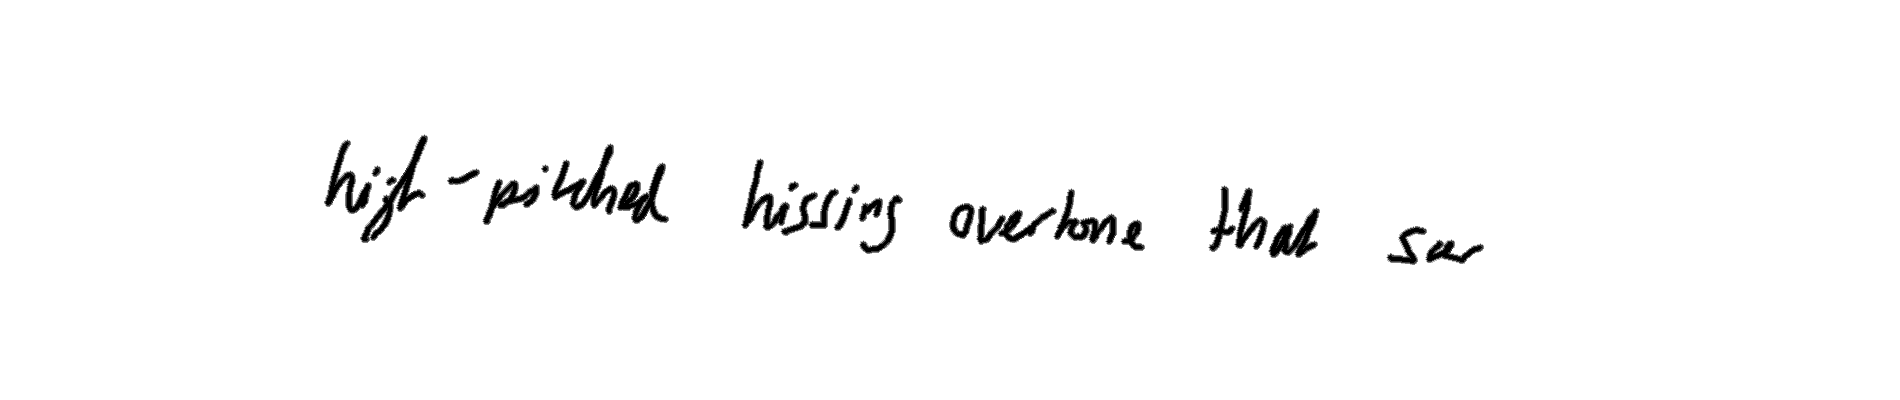 high-pitched hissing overtone that